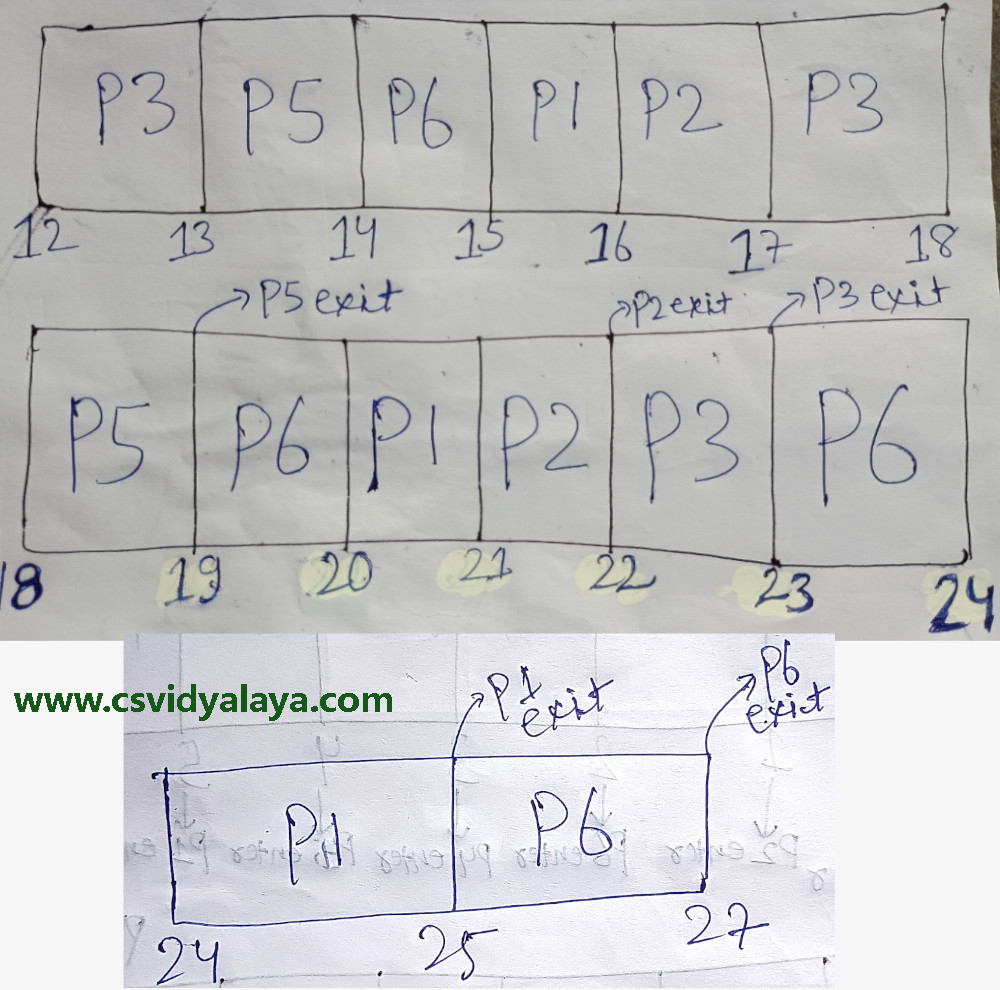 P3 P5 P6 P1 P2 P3
12 13 14 15 16 17 18
P5 exit P2 exit P3 exit
P5 P6 P1 P2 P3 P6
18 19 20 21 22 23 24
P1 exit
P6 exit
www.csvidyalaya.com
P1 P6
P2 enter
24 25 27